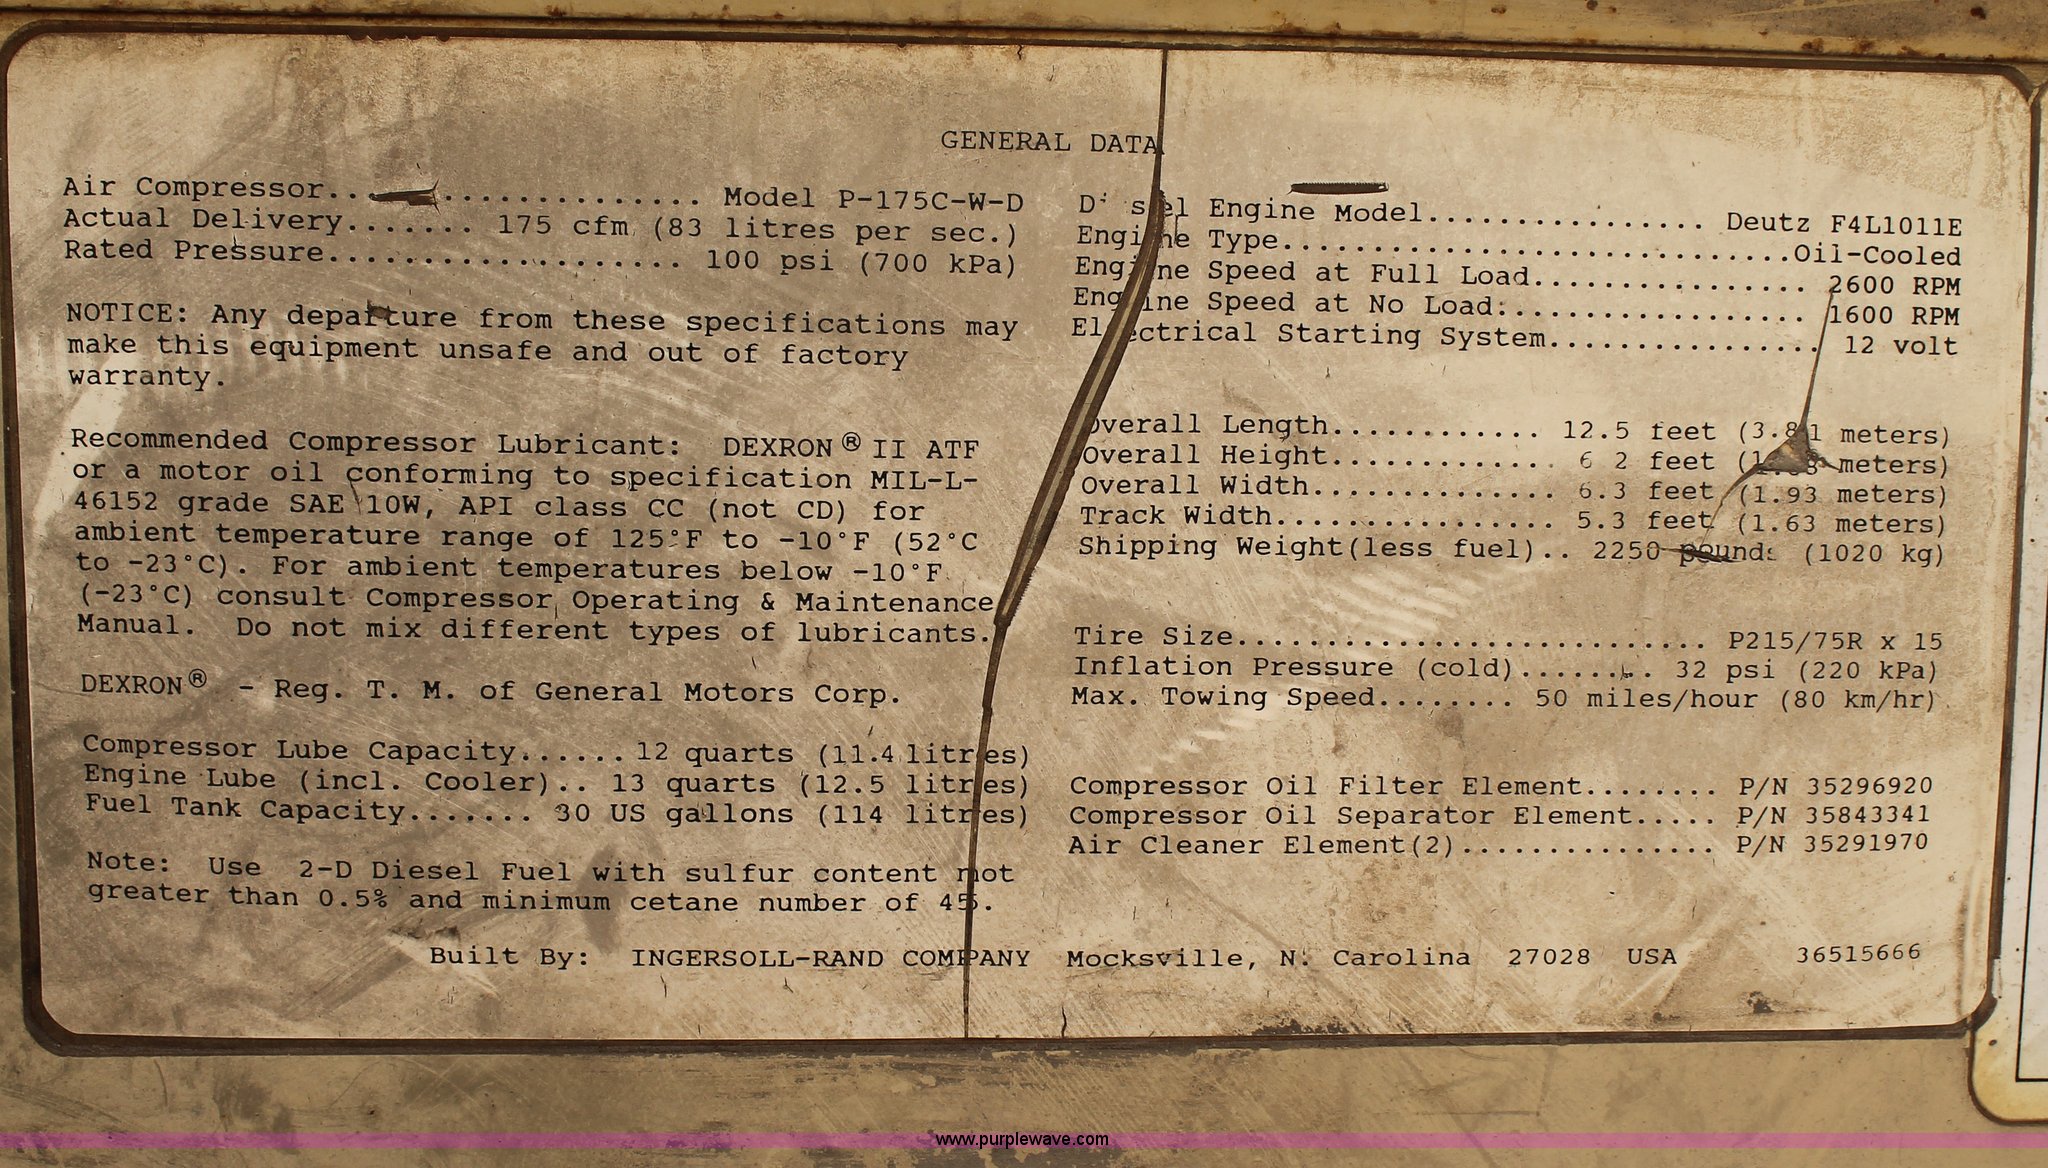 GENERAL DATA
Air Compressor..................... Model P-175C-W-D
Actual Delivery....... 175 cfm (83 litres per sec.)
Rated Pressure.................... 100 psi (700 kPa)
NOTICE: Any departure from these specifications may
make this equipment unsafe and out of factory
warranty.
Recommended Compressor Lubricant: DEXRON® II ATF
or a motor oil conforming to specification MIL-L-
46152 grade SAE 10W, API class CC (not CD) for
ambient temperature range of 125°F to -10°F (52°C
to -23°C). For ambient temperatures below -10°F
(-23°C) consult Compressor Operating & Maintenance
Manual. Do not mix different types of lubricants.
DEXRON® - Reg. T. M. of General Motors Corp.
Compressor Lube Capacity...... 12 quarts (11.4 litres)
Engine Lube (incl. Cooler).. 13 quarts (12.5 litres)
Fuel Tank Capacity....... 30 US gallons (114 litres)
Note: Use 2-D Diesel Fuel with sulfur content not
greater than 0.5% and minimum cetane number of 45.
Diesel Engine Model................ Deutz F4L1011E
Engine Type.............................Oil-Cooled
Engine Speed at Full Load................ 2600 RPM
Engine Speed at No Load:................. 1600 RPM
Electrical Starting System............... 12 volt
Overall Length............ 12.5 feet (3.81 meters)
Overall Height............. 6 2 feet meters)
Overall Width.............. 6.3 feet (1.93 meters)
Track Width................ 5.3 feet (1.63 meters)
Shipping Weight(less fuel).. 2250 pounds (1020 kg)
Tire Size........................... P215/75R x 15
Inflation Pressure (cold)........ 32 psi (220 kPa)
Max. Towing Speed........ 50 miles/hour (80 km/hr)
Compressor Oil Filter Element........ P/N 35296920
Compressor Oil Separator Element..... P/N 35843341
Air Cleaner Element(2)............... P/N 35291970
Built By: INGERSOLL-RAND COMPANY Mocksville, N. Carolina 27028 USA 36515666
www.purplewave.com